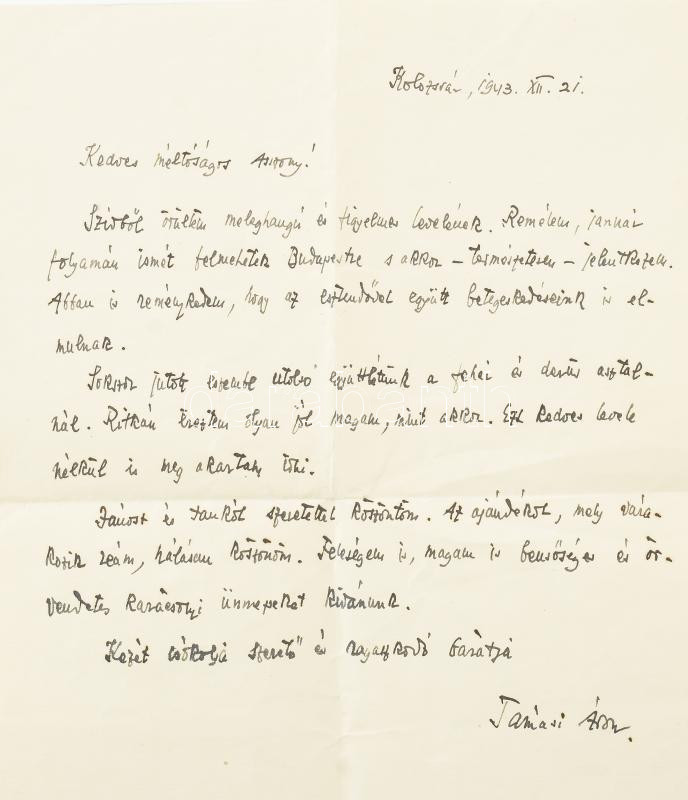 Kolozsvár, 1943. XII. 21.
Kedves méltóságos Asszony!
Szivből örültem meleghangú és figyelmes levelének. Remélem, január
folyamán ismét felmehetek Budapestre s akkor – természetesen – jelentkezem.
Abban is reménykedem, hogy az esztendővel együtt betegeskedéseink is el-
mulnak.
Sokszor jutott eszembe utolsó együttlétünk a fehér és derüs asztal-
nál. Ritkán éreztem olyan jól magam, mint akkor. Ezt kedves levele
nélkül is meg akartam írni.
Jánost és Jankót szeretettel köszöntöm. Az ajándékot, mely vára-
kozik reám, hálásan köszönöm. Feleségem is, magam is bensőséges és ör-
vendetes karácsonyi ünnepeket kivánunk.
Kezét csókolja szerető és ragaszkodó barátja
Tamási Áron.
darabanth